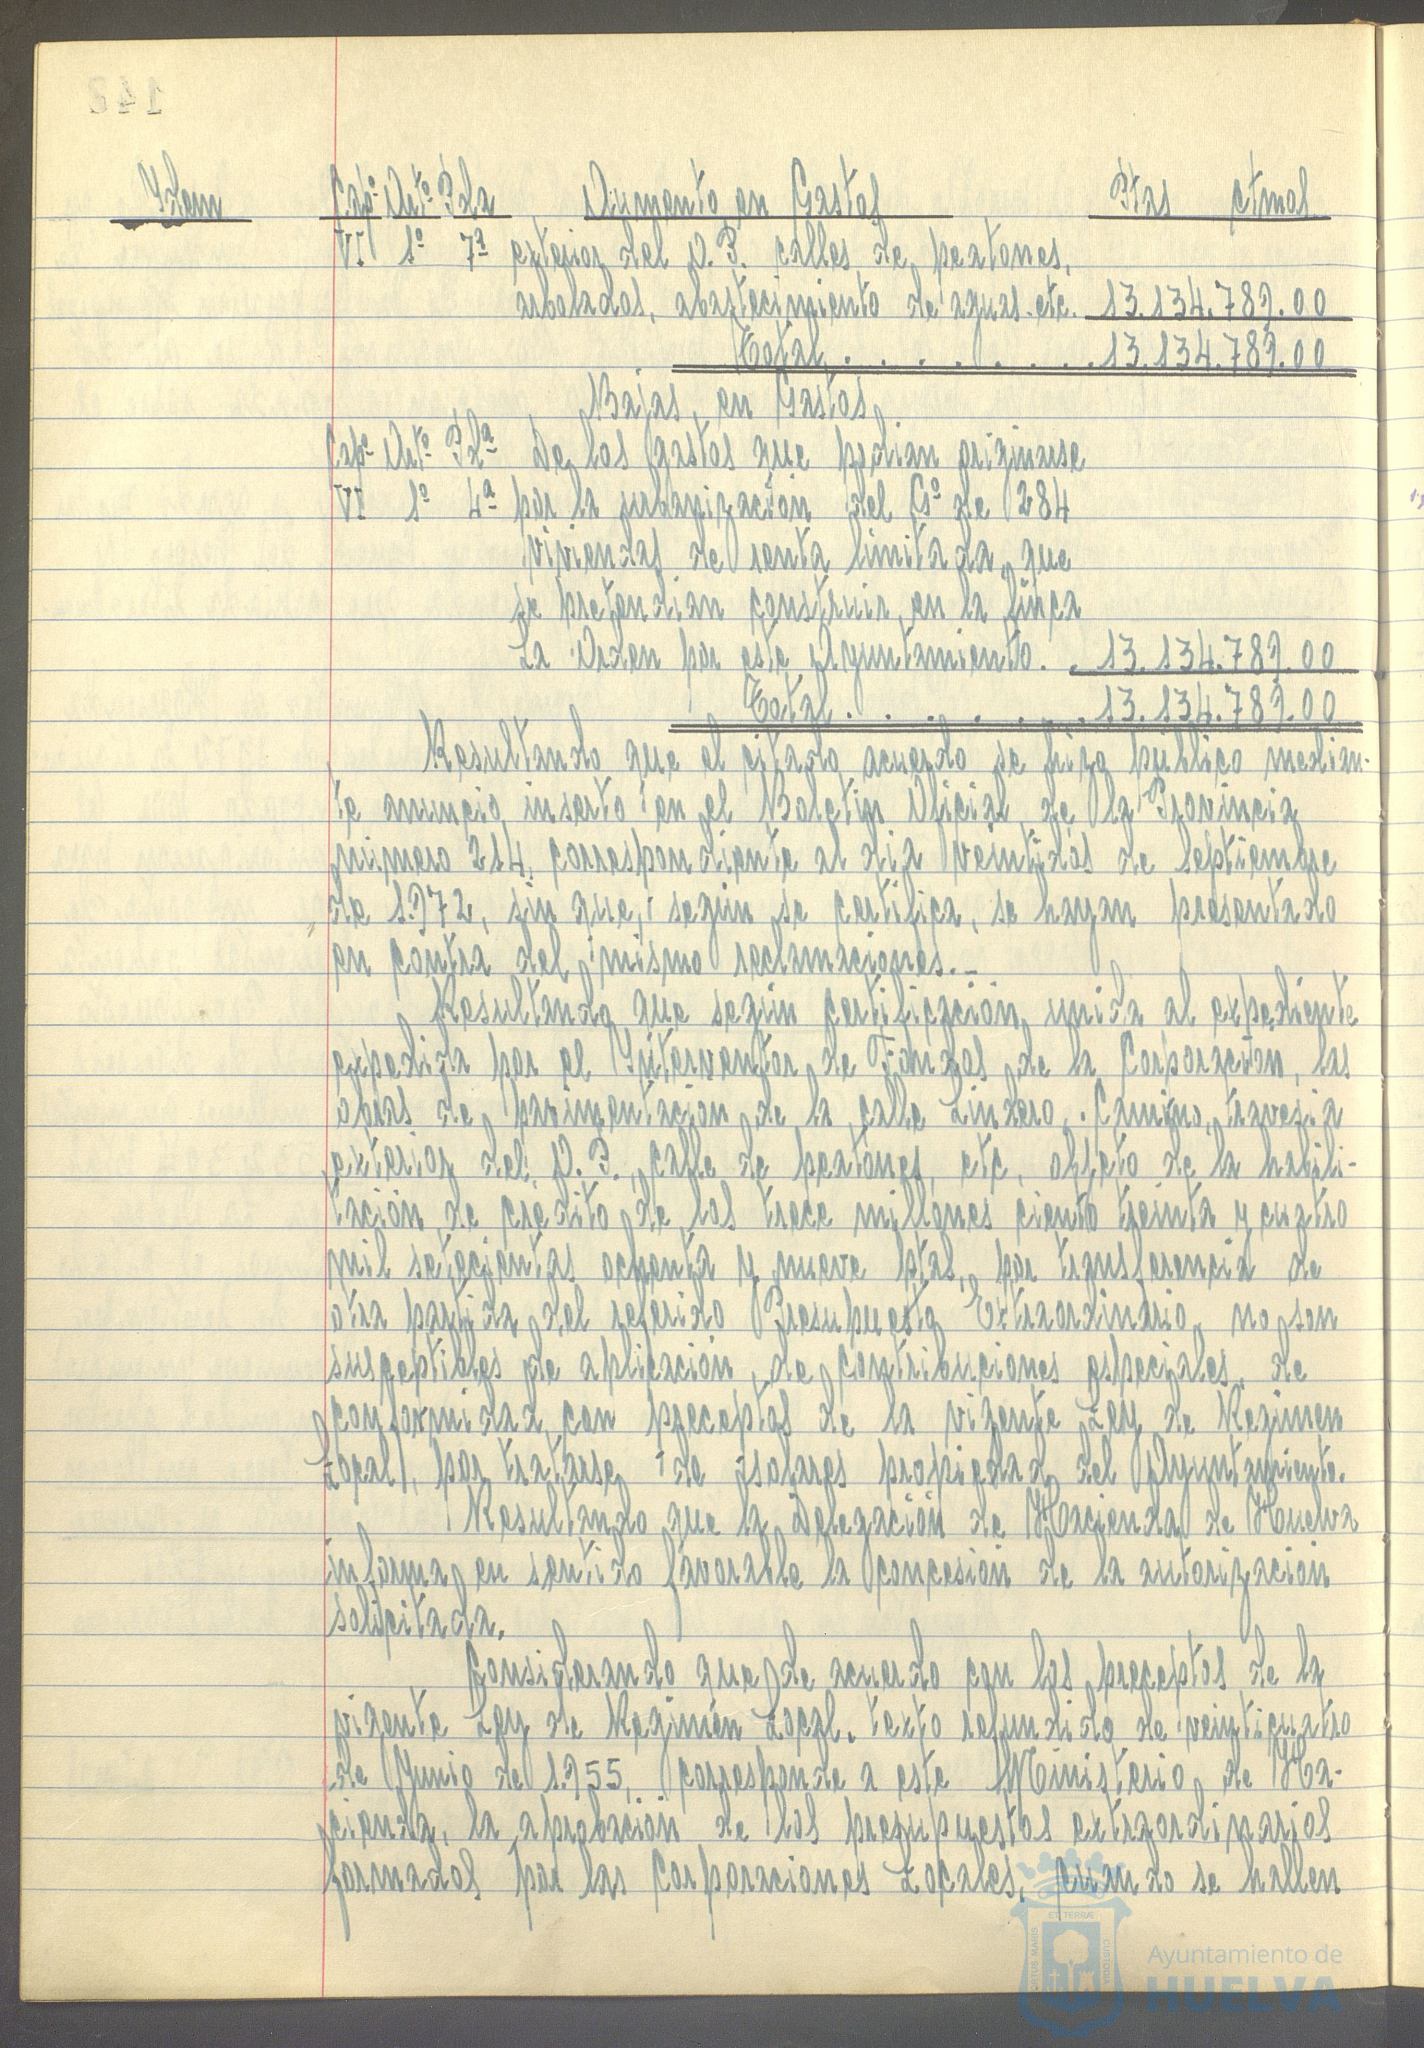 Idem Capº Artº Pda Aumento en Gastos Ptas ctmos
VI 1º 7ª exterior del V. P. calles de peatones,
arbolados, abastecimiento de aguas. etc. 13.134.789.00
Total . . . . . . . . 13.134.789.00
Bajas en Gastos
Capº Artº Pdª De los gastos que podian originarse
VI 1º 4ª por la urbanización del Gº de 284
viviendas de renta limitada que
se pretendian construir en la finca
La Orden por este Ayuntamiento. . 13.134.789.00
Total . . . . . . . 13.134.789.00
Resultando que el citado acuerdo se hizo público median-
te anuncio inserto en el Boletin Oficial de la Provincia
número 214, correspondiente al dia veintidós de septiembre
de 1.972, sin que, según se certifica, se hayan presentado
en contra del mismo reclamaciones._
Resultando que según certificación unida al expediente
expedida por el Interventor de Fondos de la Corporación, las
obras de pavimentación de la calle Lindero. Camino, travesia
exterior del V. P., calle de peatones, etc, objeto de la habili-
tación de crédito de los trece millones ciento treinta y cuatro
mil setecientas ochenta y nueve ptas, por transferencia de
otra partida del referido Presupuesto Extraordinario, no son
susceptibles de aplicación de contribuciones especiales, de
conformidad con preceptos de la vigente Ley de Regimen
Local, por tratarse de solares propiedad del Ayuntamiento.
Resultando que la Delegación de Hacienda de Huelva
informa en sentido favorable la concesión de la autorización
solicitada.
Considerando que de acuerdo con los preceptos de la
vigente Ley de Regimen Local. texto refundido de veinticuatro
de Junio de 1.955, corresponde a este Ministerio de Ha-
cienda, la aprobación de los presupuestos extraordinarios
formados por las Corporaciones Locales, cuando se hallen
Ayuntamiento de
HUELVA